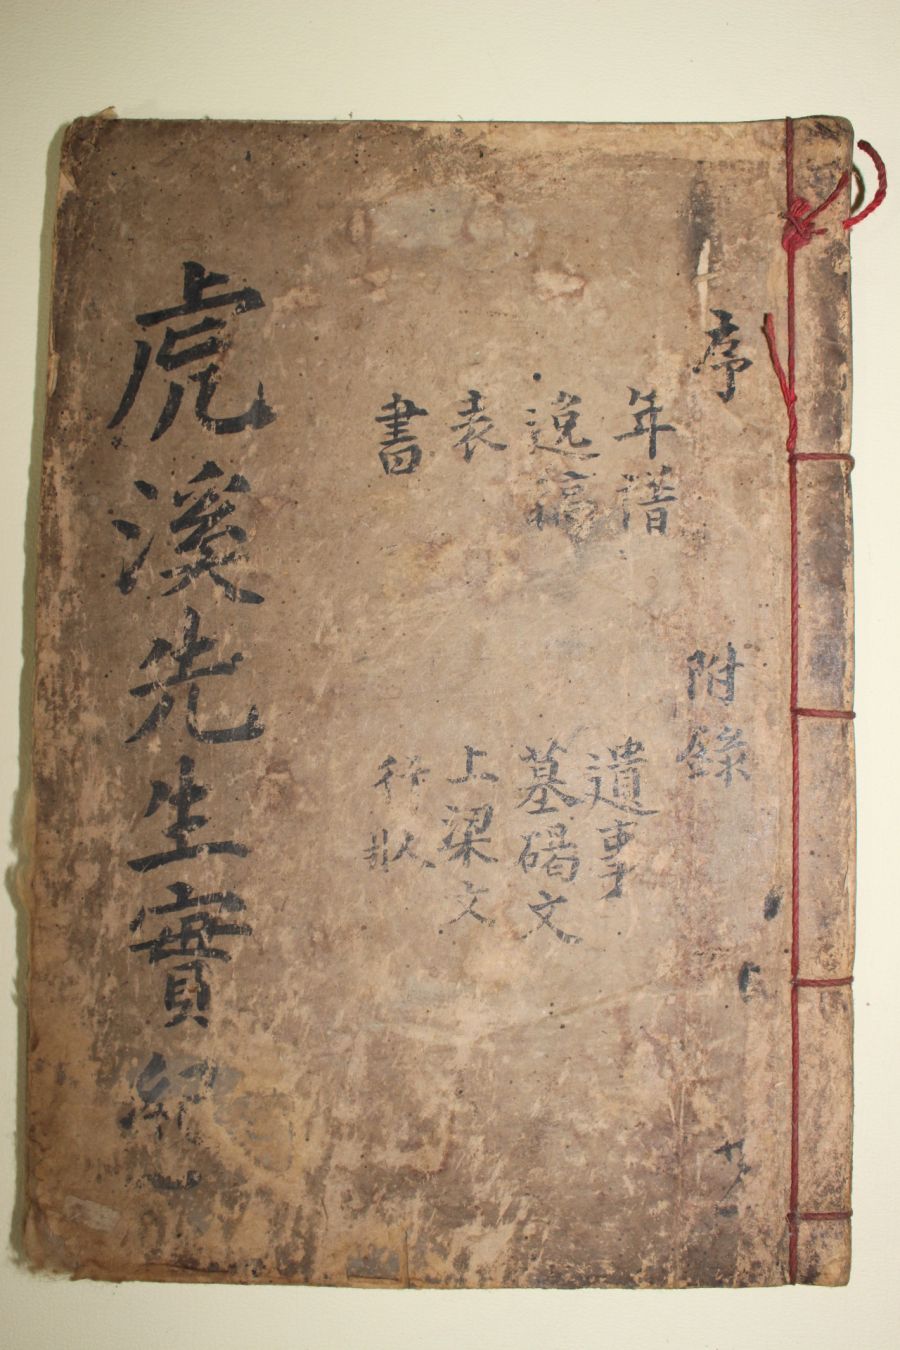 序
年譜
逸稿
表
書
附錄
遺事
墓碣文
上梁文
行狀
虎溪先生實紀